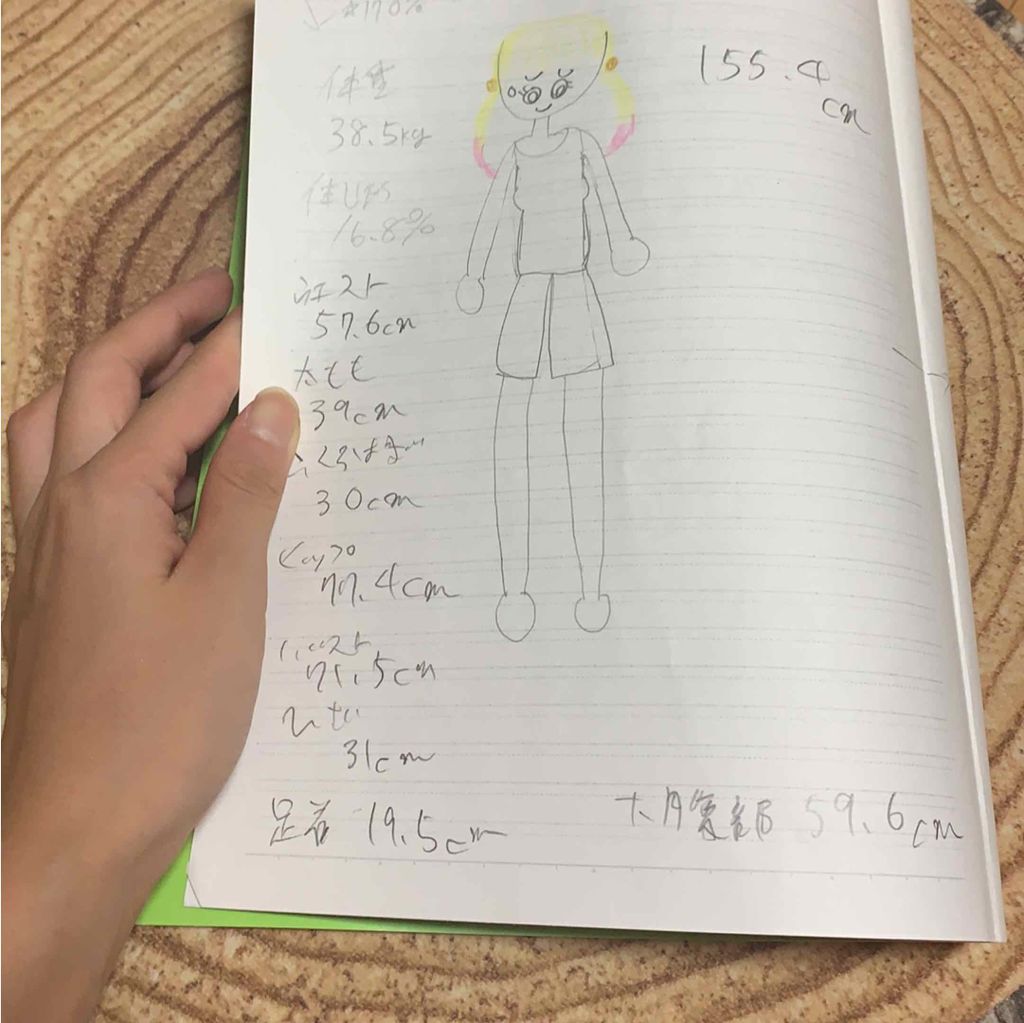 *170%
155.4
cm
体重
38.5kg
体しぼう
16.8%
ウエスト
57.6cm
太もも
39cm
ふくらはぎ
30cm
ヒップ
77.4cm
バスト
71.5cm
ひざ
31cm
足首 19.5cm
大月寛部 59.6cm